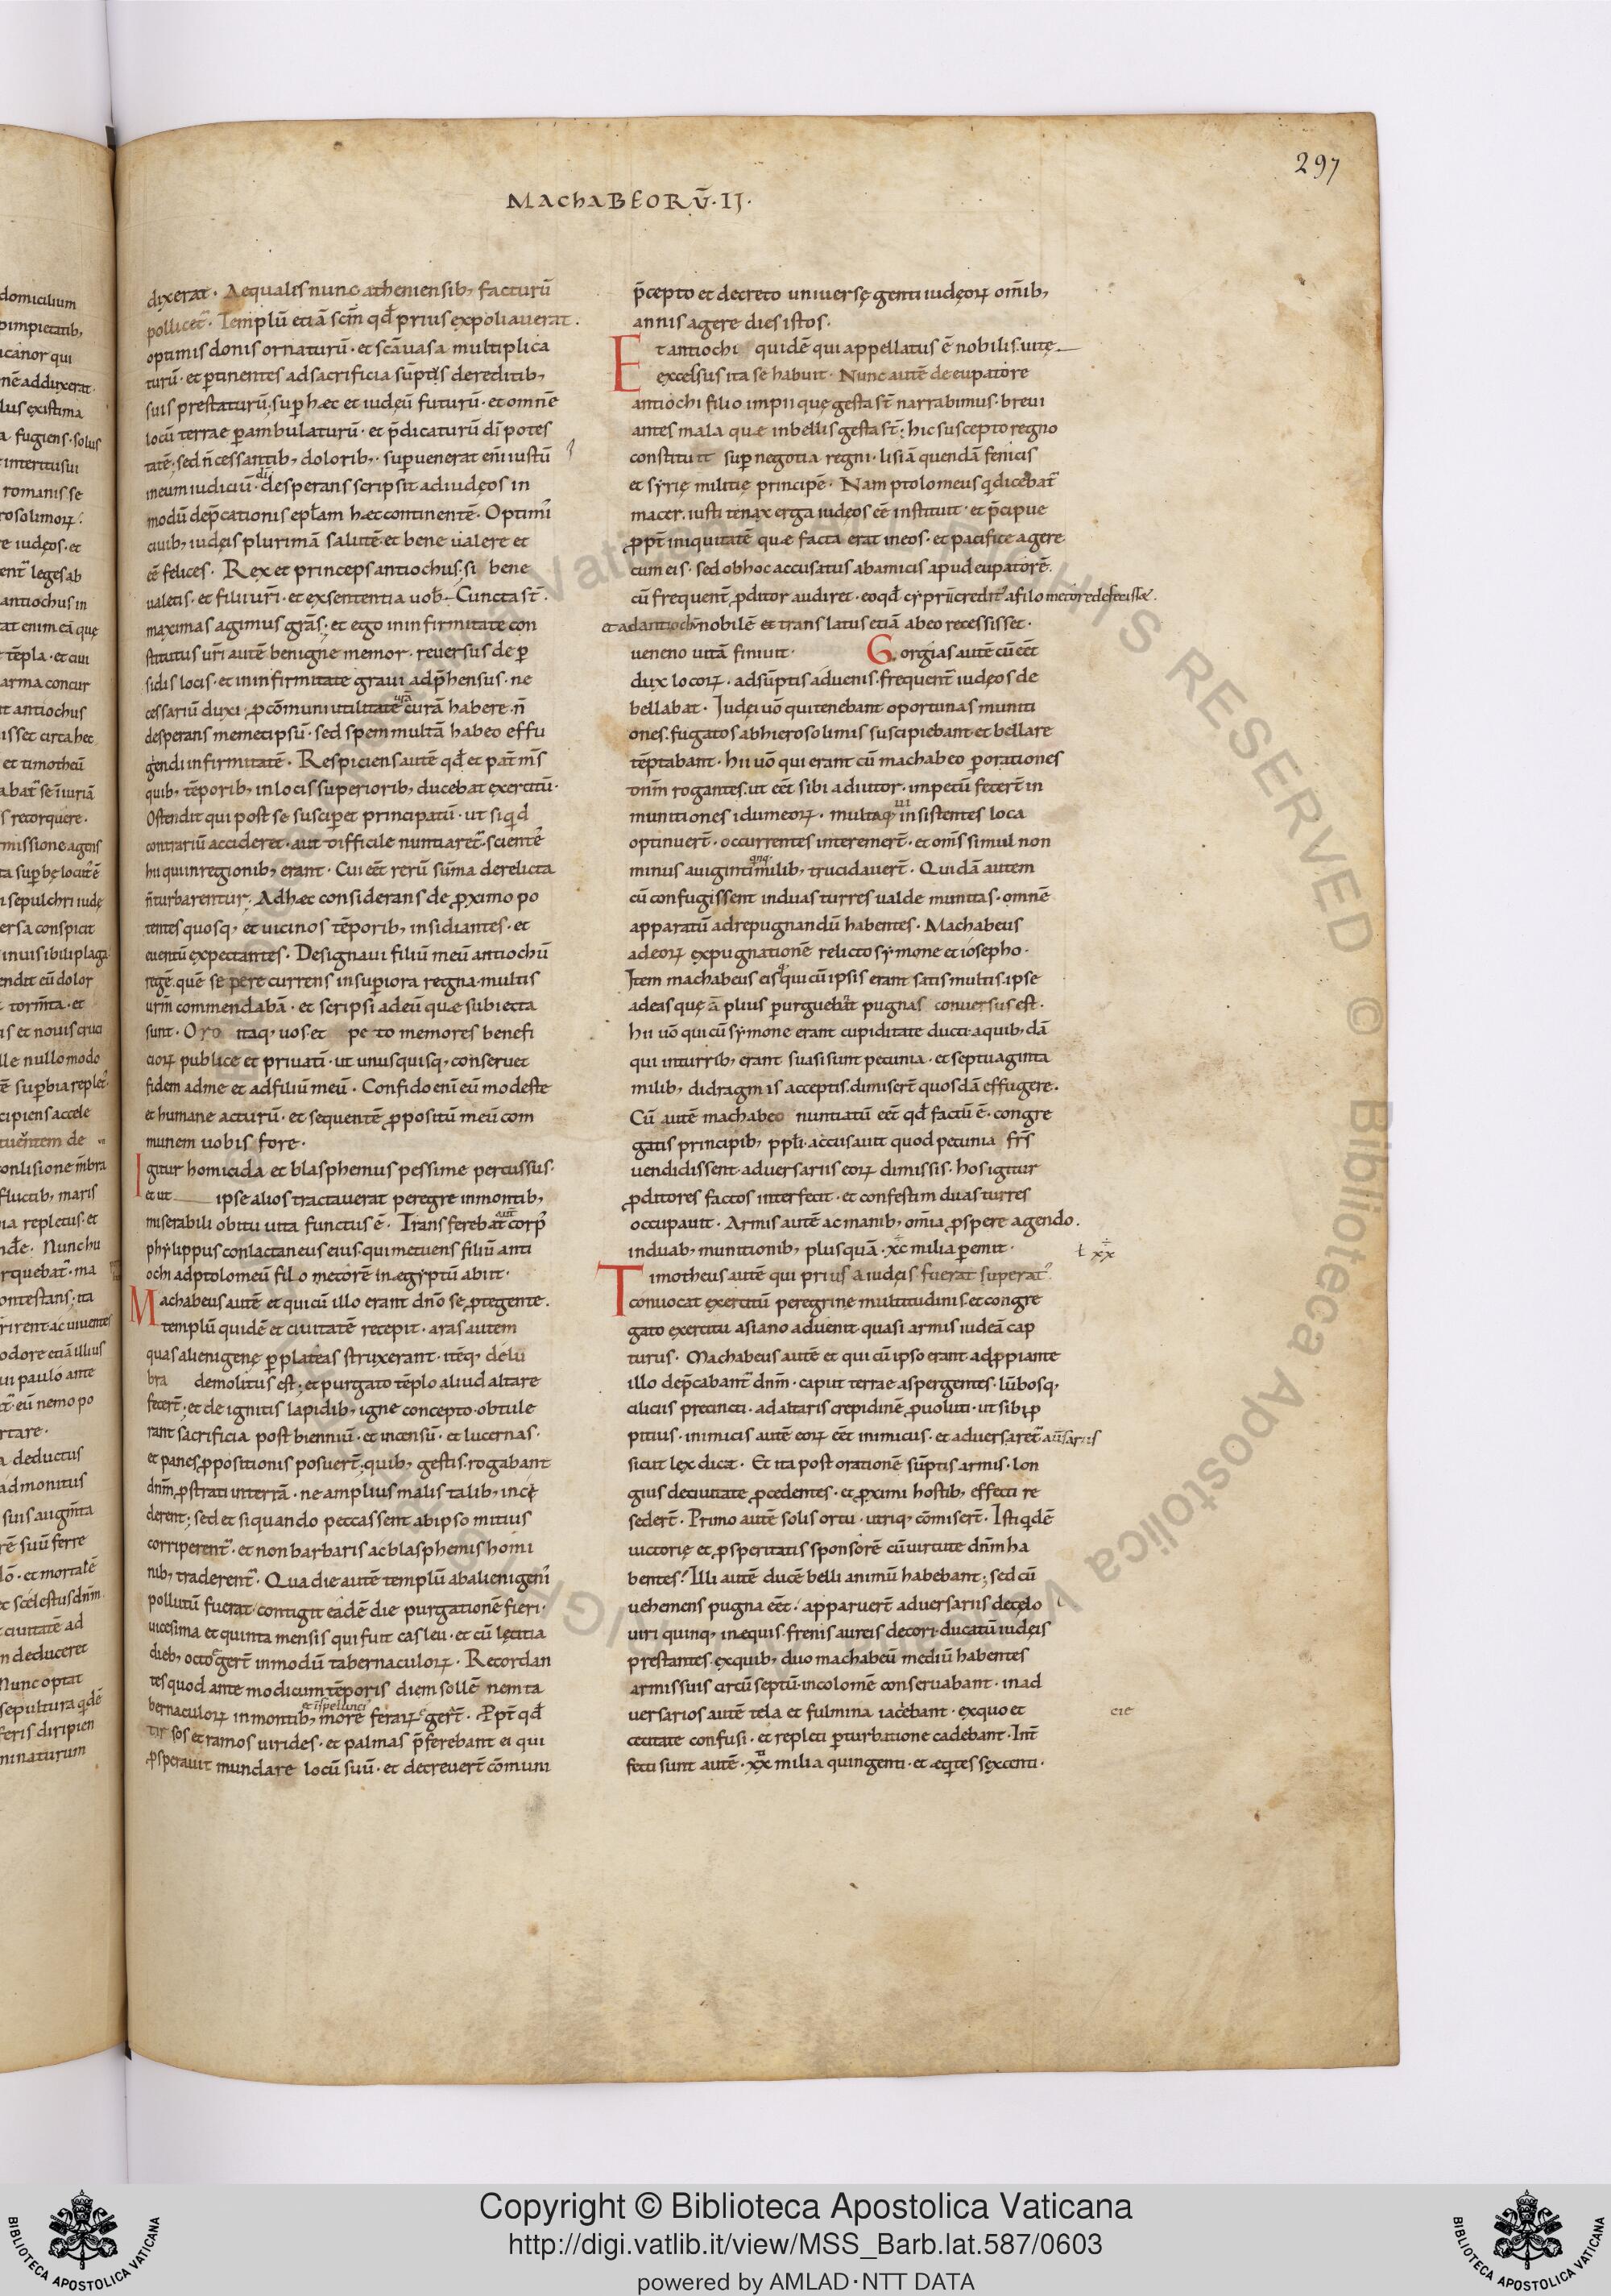 297
MachaBEORū·II·
domicilium
impietatib;
icanor qui
nē adduxerat·
lus existima
a fugiens·solus
interitu sui
romanis se
rosolimoꝝ·
e iudęos·et
leges ab
antiochus in
at enim eā quę
tēpla·et ciui
arma concur
it antiochus
isset circa hec
et timotheū
s retorquere·
missione agens
sepulchri iudę
ersa conspicit
inuisibili plaga
endit eū dolor
tormta·et
is et nouis cruci
lle nullo modo
cipiens accele
conlisione mbra
fluctib; maris
ia repletus·et
Nunc hu
ontestans; ita
ac uiuentes
odore etiā illius
ui paulo ante
eū nemo po
rtare·
a deductus
admonitus
suis augmta
rē suū ferre
et mortalē
scelestus dnm·
ciuitatē ad
n deduceret
Nunc optat
sepultura qdē
feris diripien
minaturum
dixerat· Aequalis nunc atheniensib; facturū
pollicet̄· Templū etiā scm̄ qd̄ prius expoliauerat·
optimis donis ornaturū· et scā uasa multiplica
turū· et ꝑtinentes ad sacrificia sūptus de reditib;
suis prestaturū; suꝑ hæc et iudęū futurū· et omnē
locū terrae ꝑambulaturū· et p̄dicaturū dī potes
tatē; sed n̄ cessantib; dolorib;· suꝑuenerat enī iustū
in eum iudiciū· di desperans scripsit ad iudęos in
modū dep̄cationis epl̄am hæc continentē· Optimis
ciuib; iudęis plurimā salutē· et bene ualere et
eē felices· Rex et princeps antiochus· si bene
ualetis· et filii uri· et ex sententia uob̄ Cuncta st̄·
maximas agimus grās; et ego in infirmitate con
stitutus uri autē benigne memor· reuersus de ꝑ
sidis locis· et in infirmitate graui adp̄hensus· ne
cessariū duxi· ꝓ cōmuni utilitate urā curā habere· n̄
desperans memetipsū· sed spem multā habeo effu
giendi infirmitatē· Respiciens autē qd̄ et pat̄ ms̄
quib; tēporib; in locis superiorib; ducebat exercitū·
Ostendit qui post se susciperet principatū· ut si qd
contrariū accideret· aut difficile nuntiaret̄· scientes
hii qui in regionib; erant· Cui eēt rerū sūma derelicta
n̄ turbarentur· Ad hæc considerans de ꝓximo po
tentes quosq; et uicinos tēporib; insidiantes· et
euentū expectantes· Designaui filiū meū antiochū
regē· quē sepe recurrens in suꝑiora regna· multis
urm̄ commendabā· et scripsi ad eū quæ subiecta
sunt· Oro itaq; uos et peto memores benefi
cioꝝ publice et priuati· ut unusquisq; conseruet
fidem ad me et ad filiū meū· Confido enī eū modeste
et humane acturū· et sequentē ꝓpositū meū com
munem uobis fore·
Igitur homicida et blasphemus pessime percussus·
et ut ipse alios tractauerat peregre in montib;
miserabili obitu uita functus ē· Transferebat aut̄ corpus
phylippus conlactaneus eius· qui metuens filiū anti
ochi ad ptolomeū filometorē in ægyptū abiit·
Machabeus autē et qui cū illo erant dn̄o se ꝓtegente·
templū quidē et ciuitatē recepit· aras autem
quas alienigenę ꝑ plateas struxerant· itēq; delu
bra demolitus est; et purgato tēplo aliud altare
fecert̄· et de ignitis lapidib; igne concepto· obtule
rant sacrificia post bienniū· et incensū· et lucernas·
et panes ꝓpositionis posuert̄; quib; gestis· rogabant
dnm̄ ꝓstrati in terrā· ne amplius malis talib; inci
derent; sed et si quando peccassent ab ipso mitius
corriperent̄· et non barbaris ac blasphemis homi
nib; traderent̄· Qua die autē templū ab alienigenis
pollutū fuerat· contigit eadē die purgationē fieri·
uicesima et quinta mensis qui fuit casleu· et cū lętitia
dieb; octo egert̄ in modū tabernaculoꝝ· Recordan
tes quod ante modicum tēporis diem sollēnem ta
bernaculoꝝ in montib; et ī speluncis more feraꝝ egert̄· Ppt̄ qd̄
tirsos et ramos uirides· et palmas p̄ferebant ei qui
ꝓsperauit mundare locū suū· et decreuert̄ cōmuni
p̄cepto et decreto uniuersę genti iudęoꝝ omīb;
annis agere dies istos·
Et antiochi quidē qui appellatus ē nobilis· uitę
excessus ita se habuit· Nunc autē de eupatore
antiochi filio impii quę gesta st̄ narrabimus· breui
antes mala quæ in bellis gesta st̄; hic suscepto regno
constituit suꝑ negotia regni· lisiā quendā fenicis
et syrię militię principē· Nam ptolomeus qi dicebat̄
macer· iusti tenax erga iudęos eē instituit· et p̄cipue
ꝓpt̄ iniquitatē quæ facta erat in eos· et pacifice agere
cum eis· sed ob hoc accusatus ab amicis apud eupatorē·
cū frequent̄ ꝓditor audiret· eo qd̄ cyprū creditā a filometore deseruisset·
et ad antiochū nobilē et translatus etiā ab eo recessisset·
ueneno uitā finiuit· Gorgias autē cū eēt
dux locoꝝ· adsūptis aduenis· frequent̄ iudęos de
bellabat· Iudęi uo qui tenebant oportunas muniti
ones· fugatos ab hierosolimis suscipiebant· et bellare
tēptabant· hii uo qui erant cū machabeo ꝑ orationes
dnm̄ rogantes· ut eēt sibi adiutor· impetū fecert̄ in
munitiones idumeoꝝ· multaq; ui insistentes loca
optinuert̄· occurrentes interemert̄· et oms̄ simul non
minus a uiginti qnq; milib; trucidauert̄· Quidā autem
cū confugissent in duas turres ualde munitas· omnē
apparatū ad repugnandū habentes· Machabeus
ad eoꝝ expugnationē relicto symone et iosepho·
Item machabeus eisq; qui cū ipsis erant satis multis· ipse
ad eas quę āplius ꝑurguebant pugnas conuersus est·
hii uo qui cū symone erant cupiditate ducti· a quib;dā
qui in turrib; erant suasi sunt pecunia· et septuaginta
milib; didragmis acceptis· dimisert̄ quosdā effugere·
Cū autē machabeo nuntiatū eēt qd̄ factū ē· congre
gatis principib; ppl̄i· accusauit quod pecunia frs̄
uendidissent· aduersariis eoꝝ dimissis· hos igitur
ꝓditores factos interfecit· et confestim duas turres
occupauit· Armis autē ac manib; omīa ꝓspere agendo·
in duab; munitionib; plus quā· xc milia ꝑemit·
ł xx
Timotheus autē qui prius a iudęis fuerat superatus
conuocat exercitū peregrine multitudinis· et congre
gato exercitu asiano aduenit· quasi armis iudeā cap
turus· Machabeus autē et qui cū ipso erant adꝓpiante
illo dep̄cabant̄ dnm̄· caput terrae aspergentes· lūbosq;
ciliciis precincti· ad altaris crepidinē ꝓuoluti· ut sibi ꝓ
pitius· inimicis autē eoꝝ eēt inimicus· et aduersaret̄ auersariis
sicut lex dicit· Et ita post orationē sūptis armis· lon
gius de ciuitate ꝓcedentes· et ꝓximi hostib; effecti re
sedert̄· Primo autē solis ortu· utriq; cōmisert̄· Isti qdē
uictorię et ꝓsperitatis sponsorē cū uirtute dnm̄ ha
bentes· Illi autē ducē belli animū habebant; sed cū
uehemens pugna eēt· apparuert̄ aduersariis de cęlo
uiri quinq; in æquis· frenis aureis decori· ducatū iudęis
prestantes· ex quib; duo machabeū mediū habentes
armis suis circūseptū· incolomē conseruabant· in ad
uersarios autē tela et fulmina iaciebant· ex quo et
cecitate confusi· et repleti ꝑturbatione cadebant· Int̄
fecti sunt autē· xx milia quingenti· et æqites sexcenti·
cie
Copyright © Biblioteca Apostolica Vaticana
http://digi.vatlib.it/view/MSS_Barb.lat.587/0603
powered by AMLAD·NTT DATA
BIBLIOTECA APOSTOLICA VATICANA
BIBLIOTECA APOSTOLICA VATICANA